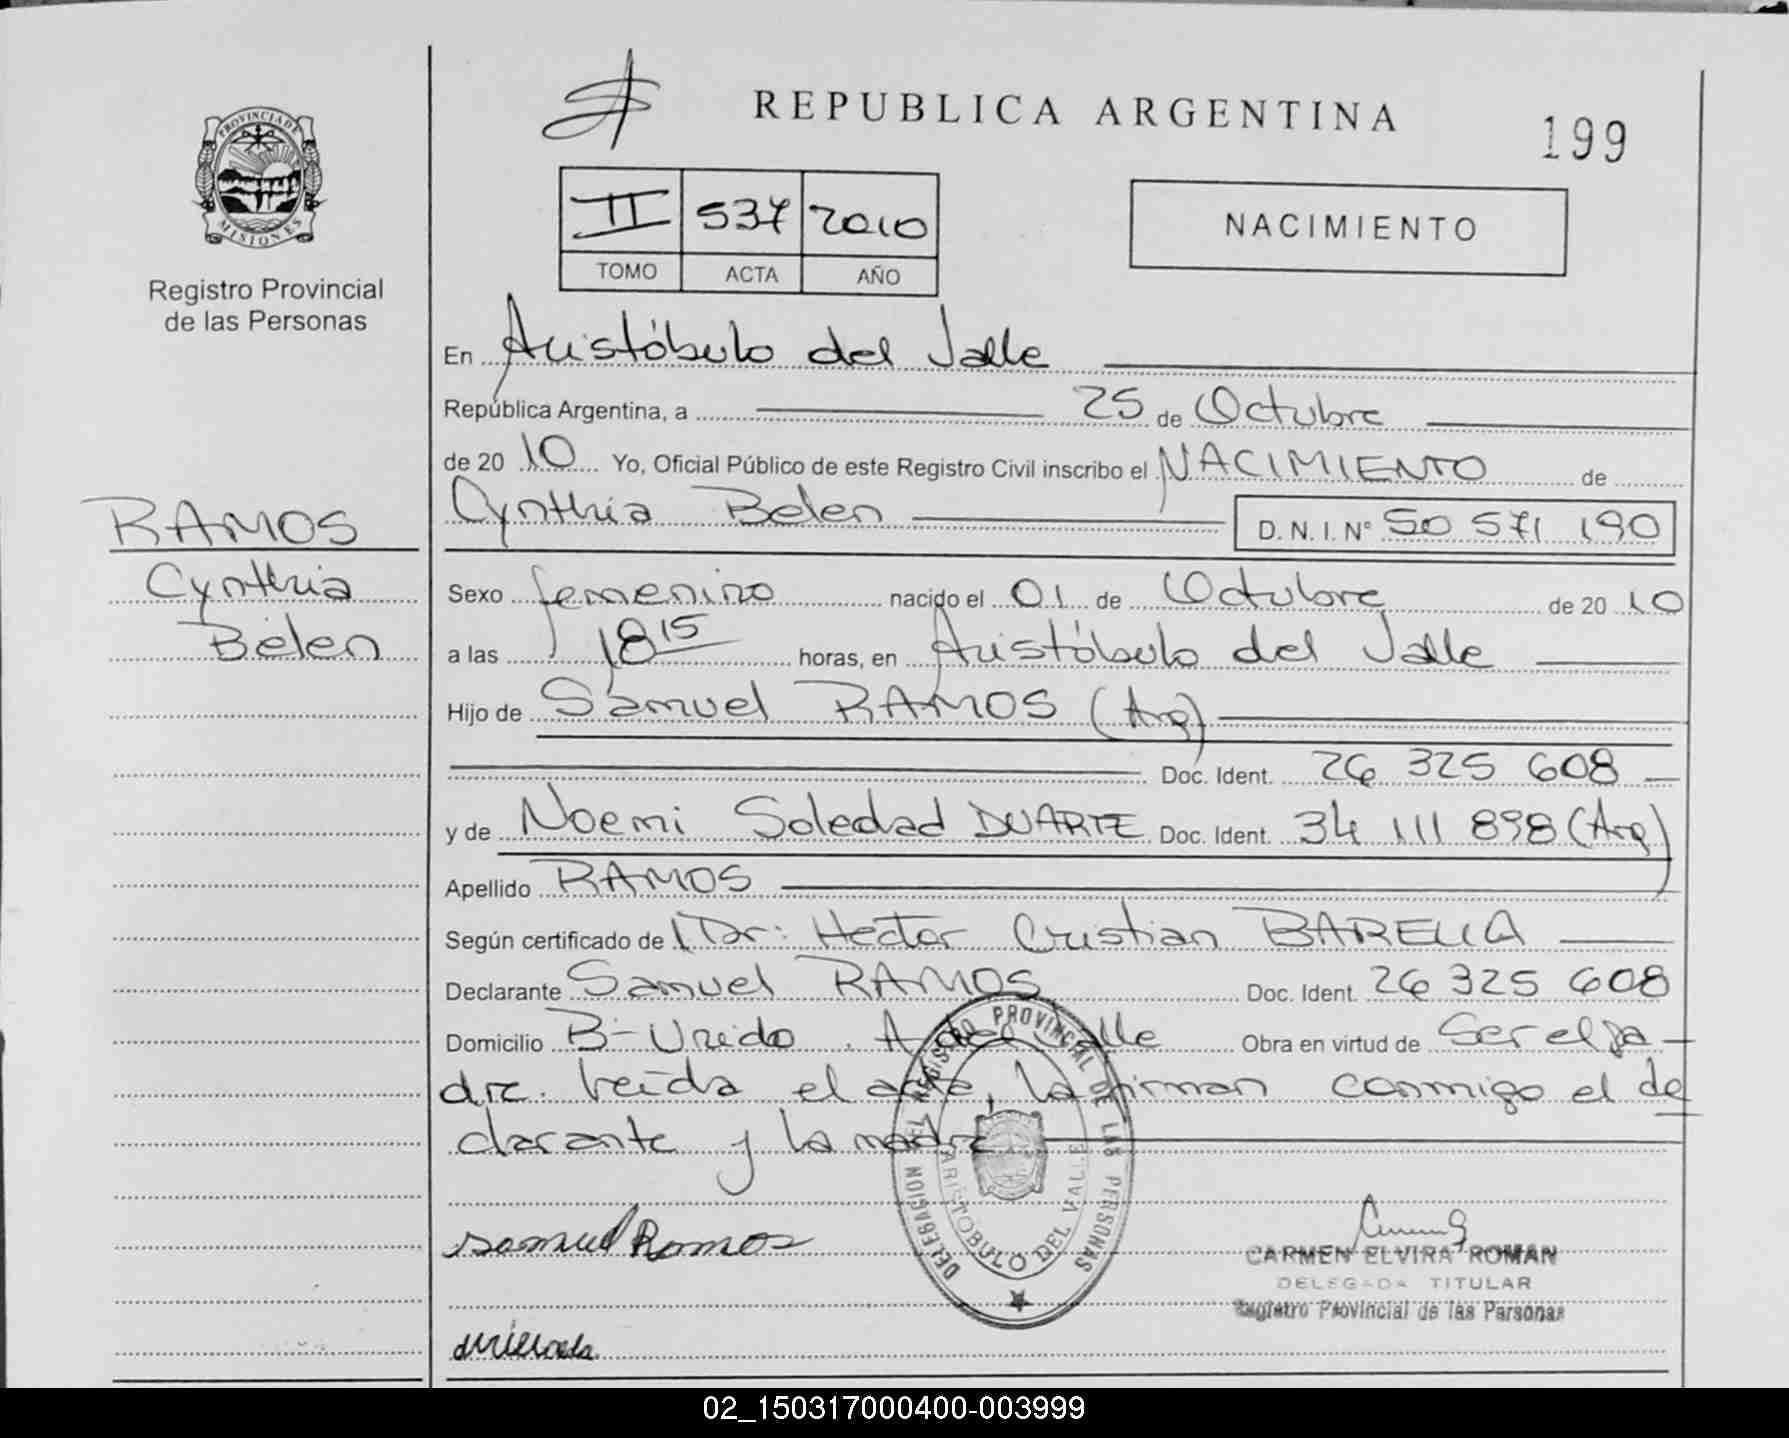 REPUBLICA ARGENTINA
199
PROVINCIA DE
MISIONES
Registro Provincial
de las Personas
II 537 2010
TOMO ACTA AÑO
NACIMIENTO
En Aristóbulo del Valle
República Argentina, a 25 de Octubre
de 20 10 Yo, Oficial Público de este Registro Civil inscribo el NACIMIENTO de
Cynthia Belen D. N. I. Nº 50 571 190
RAMOS
Cynthia
Belen
Sexo femenino nacido el 01 de Octubre de 20 10
a las 18 15 horas, en Aristóbulo del Valle
Hijo de Samuel RAMOS (Arg)
Doc. Ident. 26 325 608
y de Noemi Soledad DUARTE Doc. Ident. 34 111 898 (Arg)
Apellido RAMOS
Según certificado de Dr: Hector Cristian BARELLA
Declarante Samuel RAMOS Doc. Ident. 26 325 608
Domicilio B- Unido. A del Valle Obra en virtud de Ser el pa-
dre. Leída el acta, la firman conmigo el de
clarante y la madre
DELEGACION DEL REGISTRO PROVINCIAL DE LAS PERSONAS
ARISTOBULO DEL VALLE
Samuel Ramos
CARMEN ELVIRA ROMAN
DELEGADA TITULAR
Registro Provincial de las Personas
02_150317000400-003999